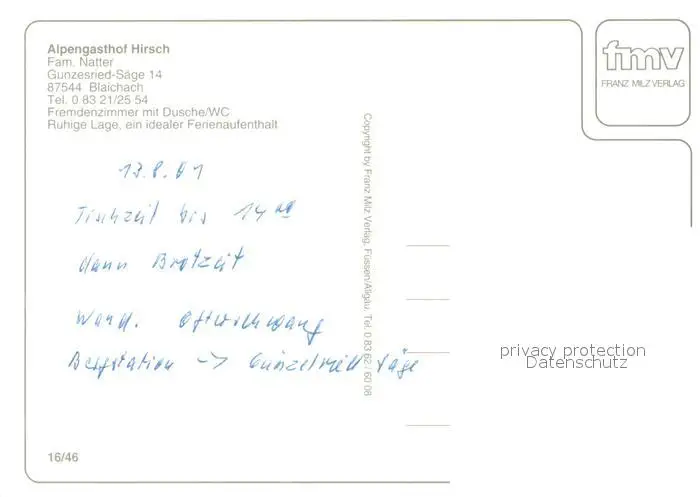 Alpengasthof Hirsch
Fam. Natter
Gunzesried-Säge 14
87544 Blaichach
Tel. 0 83 21/25 54
Fremdenzimmer mit Dusche/WC
Ruhige Lage, ein idealer Ferienaufenthalt
fmv
FRANZ MILZ VERLAG
Copyright by Franz Milz Verlag, Füssen/Allgäu, Tel. 0 83 62 / 60 08
13.8.01
Tischzeit bis 14 00
dann Brotzeit
Wand. Ofterschwang
Bergstation -> Gunzelried Säge
privacy protection
Datenschutz
16/46